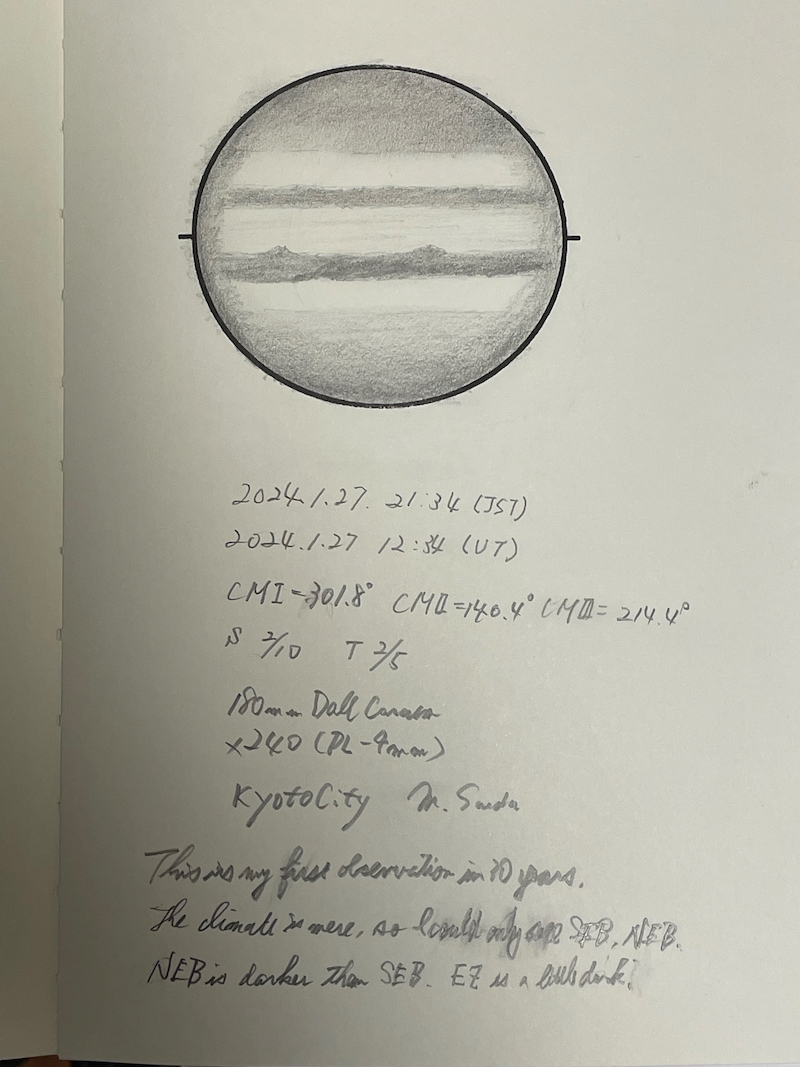 2024.1.27. 21:34 (JST)
2024.1.27 12:34 (UT)
CMI=301.8° CMII=140.4° CMIII= 214.4°
S 2/10 T 2/5
180mm Dall
×240 (PL-9mm)
Kyoto City M.
This is my first observation in 10 years.
The climate is, so I could only see SEB, NEB.
NEB is darker than SEB. EZ is a little dark.